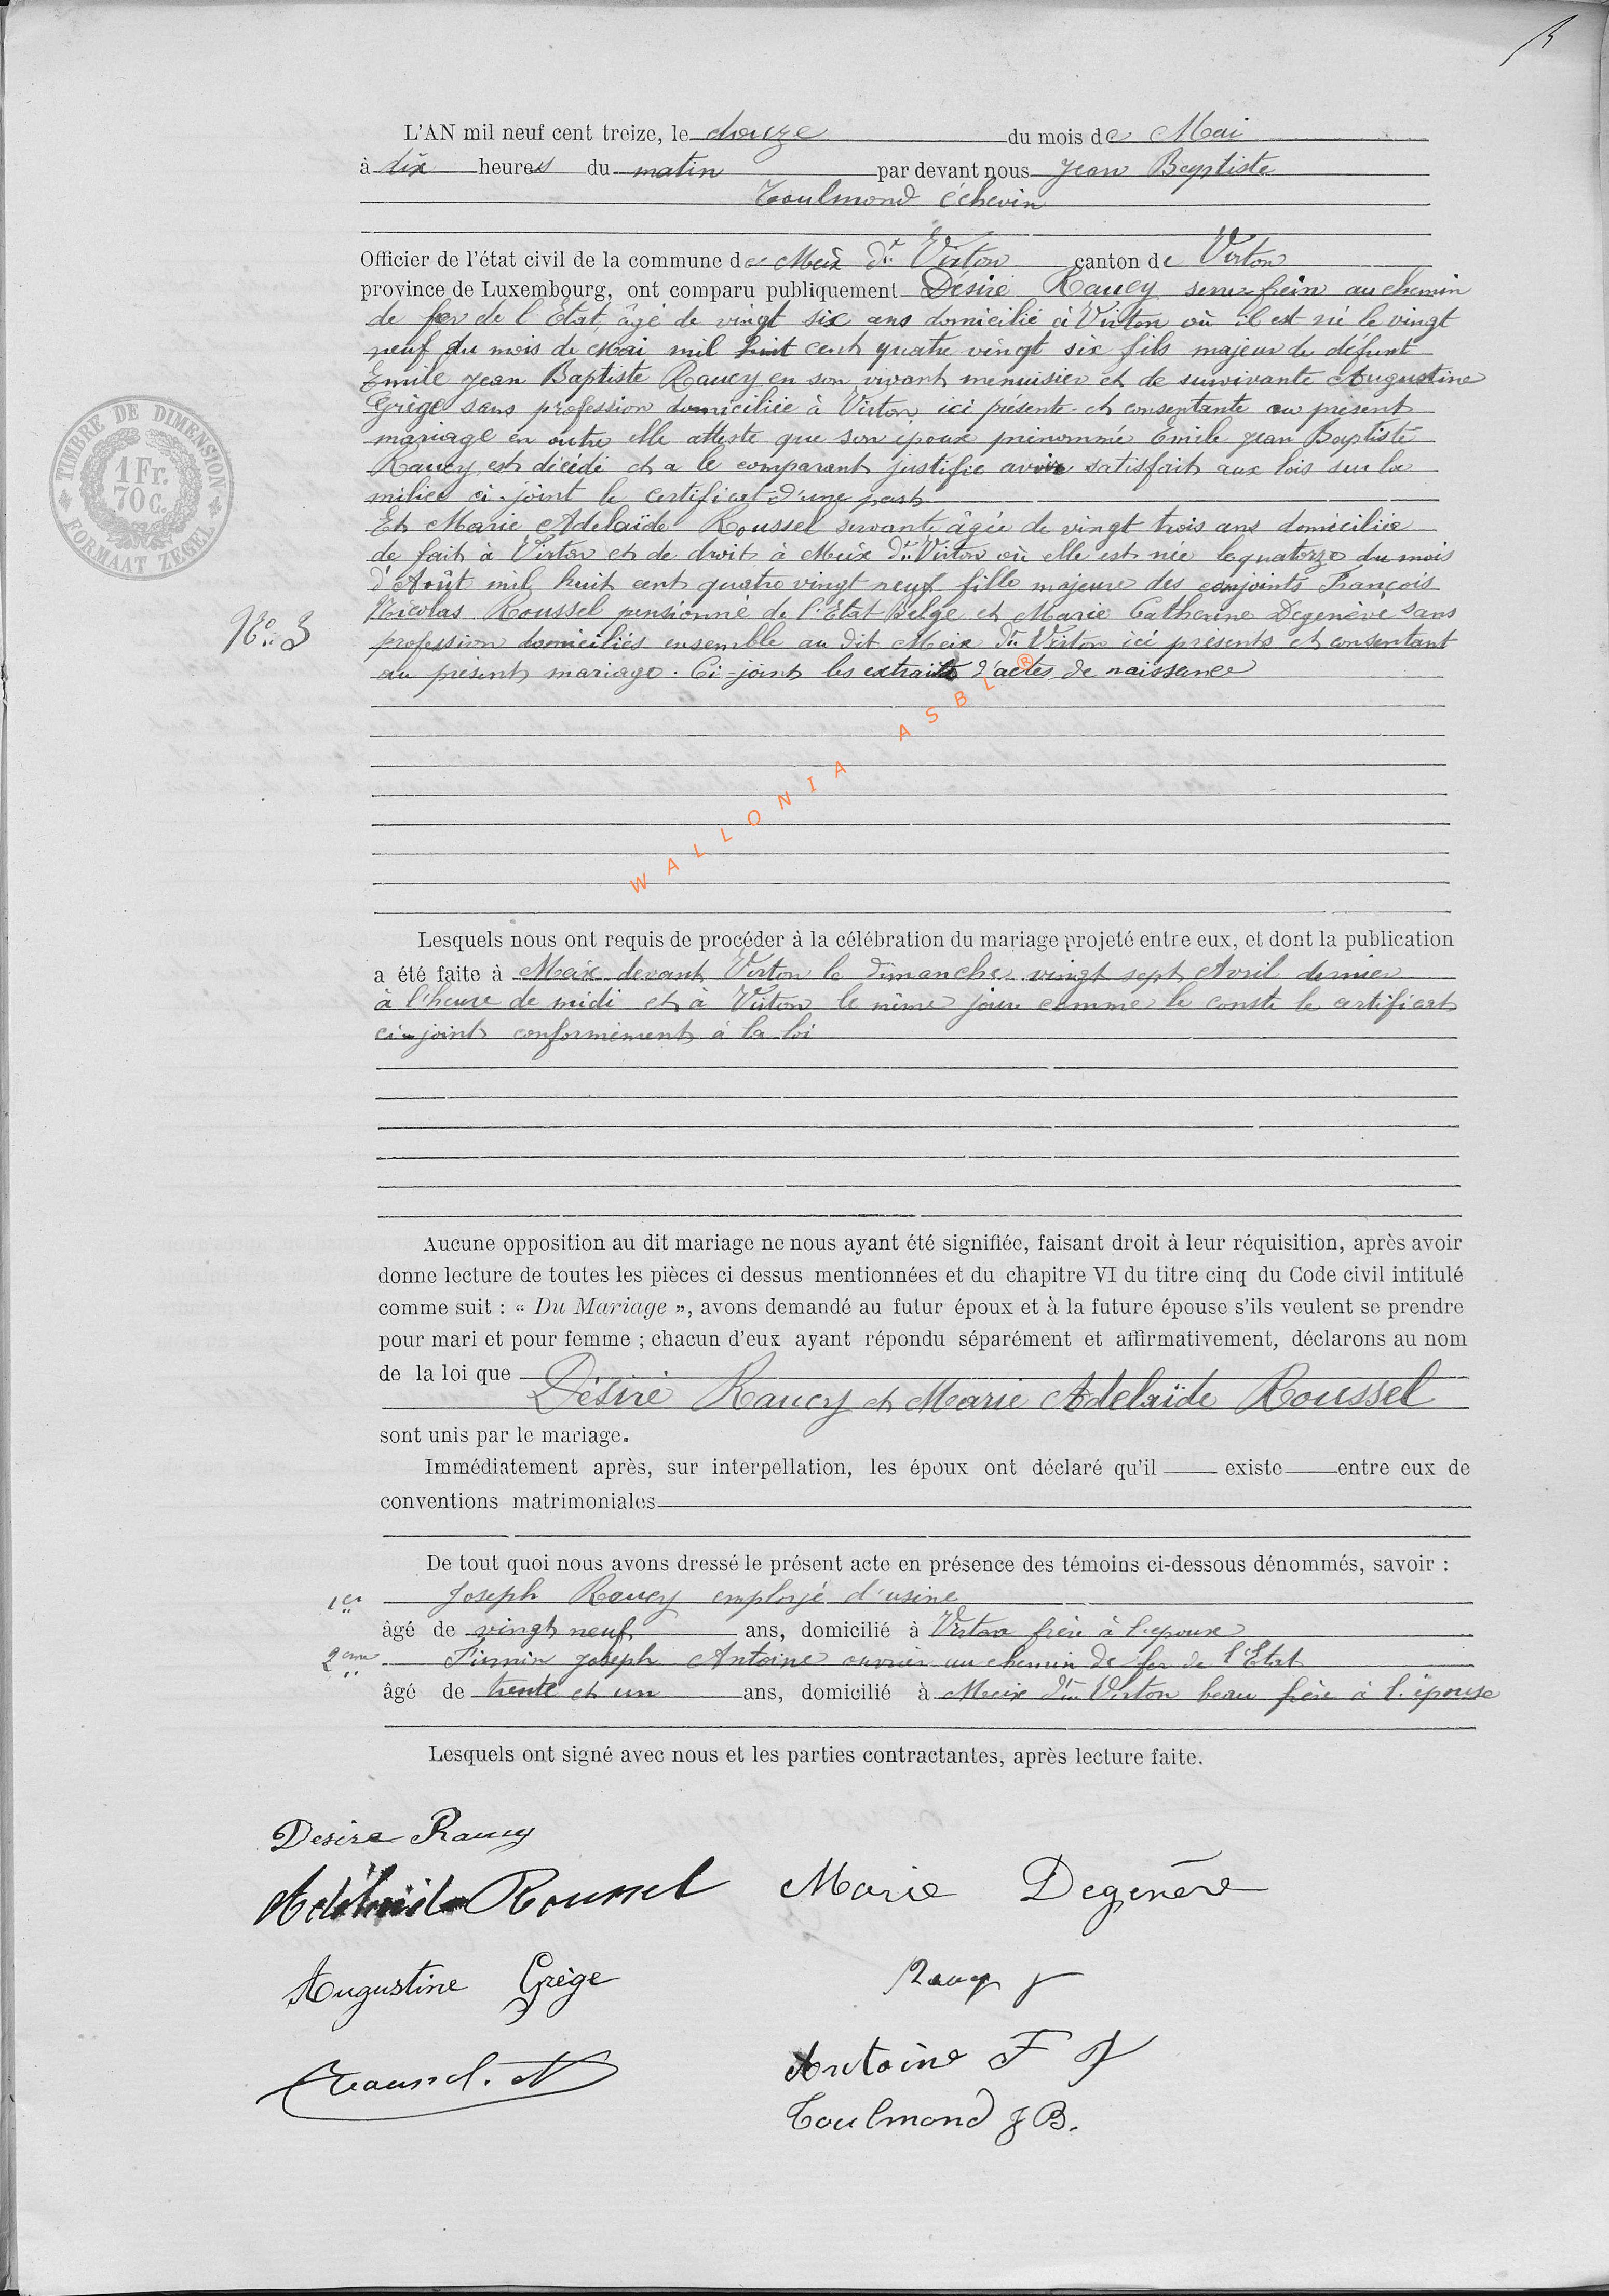 L'AN mil neuf cent treize, le douze du mois de Mai
à dix heures du matin par devant nous Jean Baptiste
Toulmond échevin
Officier de l'état civil de la commune de Meix dt Virton canton de Virton
province de Luxembourg, ont comparu publiquement Désiré Raucy serre-frein au chemin
de fer de l'Etat, âgé de vingt six ans domicilié à Virton où il est né le vingt
neuf du mois de Mai mil huit cent quatre vingt six fils majeur de défunt
Emile Jean Baptiste Raucy en son vivant menuisier et de survivante Augustine
Grège sans profession domiciliée à Virton ici présente et consentante au présent
mariage en outre elle atteste que son époux prénommé Emile Jean Baptiste
Raucy est décédé et a le comparant justifié avoir satisfait aux lois sur la
milice ci-joint le certificat d'une part
Et Marie Adelaïde Roussel servante âgée de vingt trois ans domiciliée
de fait à Virton et de droit à Meix dt Virton où elle est née le quatorze du mois
d'Août mil huit cent quatre vingt neuf fille majeure des conjoints François
Nicolas Roussel pensionné de l'Etat Belge et Marie Catherine Degenève sans
N° 3
profession domiciliés ensemble au dit Meix dt Virton ici présents et consentant
au présent mariage. Ci-joint les extraits d'actes de naissance
WALLONIA ASBL ®
TIMBRE DE DIMENSION
1 Fr.
70 c.
FORMAAT ZEGEL
Lesquels nous ont requis de procéder à la célébration du mariage projeté entre eux, et dont la publication
a été faite à Meix devant Virton le dimanche vingt sept Avril dernier
à l'heure de midi et à Virton le même jour comme le conste le certificat
ci-joint conformément à la loi
Aucune opposition au dit mariage ne nous ayant été signifiée, faisant droit à leur réquisition, après avoir
donne lecture de toutes les pièces ci dessus mentionnées et du chapitre VI du titre cinq du Code civil intitulé
comme suit : « Du Mariage », avons demandé au futur époux et à la future épouse s'ils veulent se prendre
pour mari et pour femme ; chacun d'eux ayant répondu séparément et affirmativement, déclarons au nom
de la loi que
Désiré Raucy et Marie Adelaïde Roussel
sont unis par le mariage.
Immédiatement après, sur interpellation, les époux ont déclaré qu'il existe entre eux de
conventions matrimoniales
De tout quoi nous avons dressé le présent acte en présence des témoins ci-dessous dénommés, savoir :
1er Joseph Raucy employé d'usine
âgé de vingt neuf ans, domicilié à Virton frère à l'époux
2eme Firmin Joseph Antoine ouvrier au chemin de fer de l'Etat
âgé de trente et un ans, domicilié à Meix dt Virton beau frère à l'épouse
Lesquels ont signé avec nous et les parties contractantes, après lecture faite.
Desire Raucy
Adélaïde Roussel Marie Degenève
Augustine Grège Raucy J
Roussel. N Antoine F J
Toulmond J B.